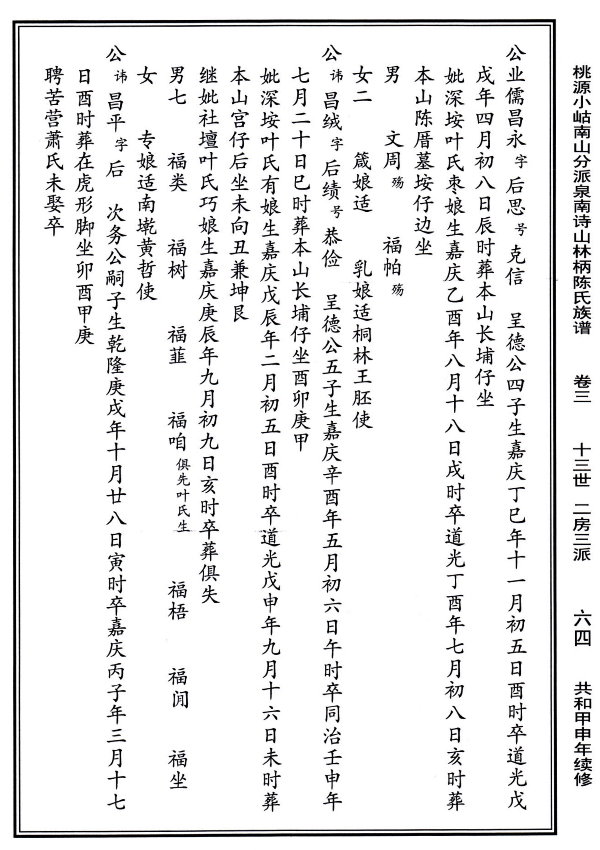 桃源小岵南山分派泉南诗山林柄陈氏族谱 卷三 十三世 二房三派 六四 共和甲申年续修
公业儒昌永字后思号克信 呈德公四子生嘉庆丁巳年十一月初五日酉时卒道光戊
戌年四月初八日辰时葬本山长埔仔坐
妣深垵叶氏枣娘生嘉庆乙酉年八月十八日戌时卒道光丁酉年七月初八日亥时葬
本山陈厝墓垵仔边坐
男 文周殇 福帕殇
女二 箴娘适 乳娘适桐林王胚使
公讳昌绒字后绩号恭俭 呈德公五子生嘉庆辛酉年五月初六日午时卒同治壬申年
七月二十日巳时葬本山长埔仔坐酉卯庚甲
妣深垵叶氏有娘生嘉庆戊辰年二月初五日酉时卒道光戊申年九月十六日未时葬
本山宫仔后坐未向丑兼坤艮
继妣社壇叶氏巧娘生嘉庆庚辰年九月初九日亥时卒葬俱失
男七 福类 福树 福韮 福咱俱先叶氏生 福梧 福闶 福坐
女 专娘适南墘黄哲使
公讳昌平字后 次务公嗣子生乾隆庚戌年十月廿八日寅时卒嘉庆丙子年三月十七
日酉时葬在虎形脚坐卯酉甲庚
聘苦营萧氏未娶卒